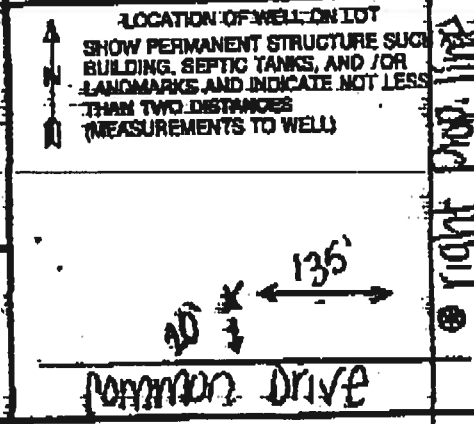 LOCATION OF WELL ON LOT
SHOW PERMANENT STRUCTURE SUCH
BUILDING, SEPTIC TANKS, AND /OR
LANDMARKS AND INDICATE NOT LESS
THAN TWO DISTANCES
(MEASUREMENTS TO WELL)
N
135'
20'
Common Drive
right Prop.